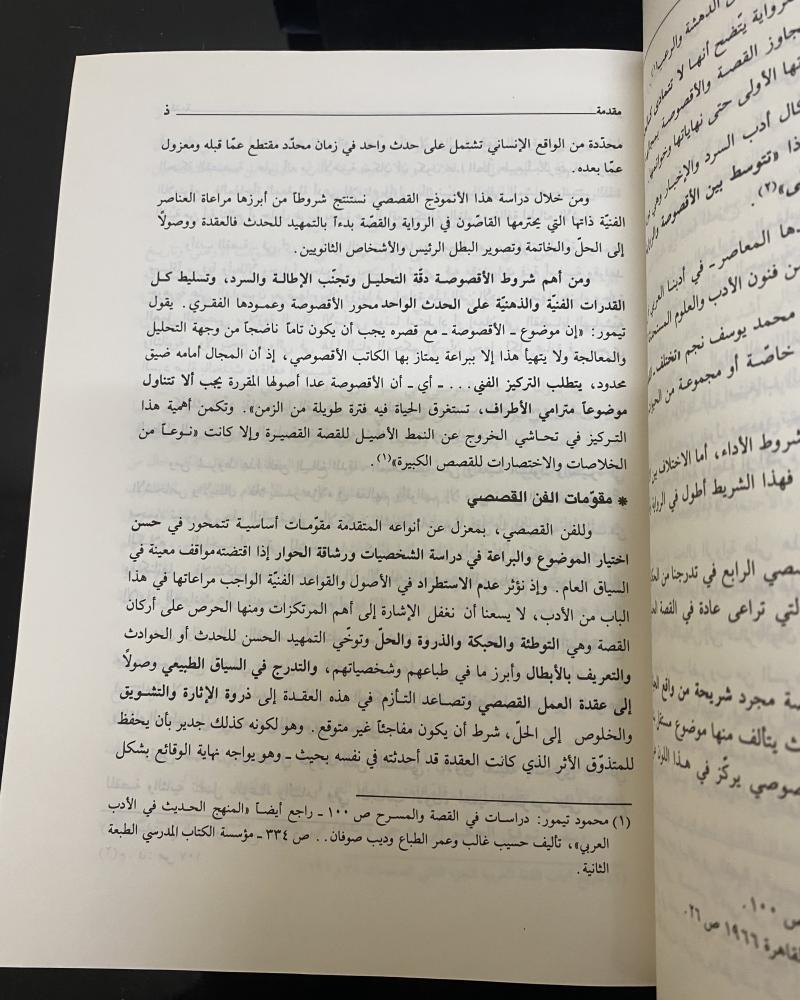 مقدمة ذ
محدّدة من الواقع الإنساني تشتمل على حدث واحد في زمان محدّد مقتطع عمّا قبله ومعزول
عمّا بعده.
ومن خلال دراسة هذا الأنموذج القصصي نستنتج شروطاً من أبرزها مراعاة العناصر
الفنيّة ذاتها التي يحترمها القاصّون في الرواية والقصّة بدءاً بالتمهيد للحدث فالعقدة ووصولًا
إلى الحلّ والخاتمة وتصوير البطل الرئيس والأشخاص الثانويين.
ومن أهم شروط الأقصوصة دقّة التحليل وتجنّب الإطالة والسرد، وتسليط كل
القدرات الفنيّة والذهنيّة على الحدث الواحد محور الأقصوصة وعمودها الفقري. يقول
تيمور: «إن موضوع ـ الأقصوصة ـ مع قصره يجب أن يكون تاماً ناضجاً من وجهة التحليل
والمعالجة ولا يتهيأ هذا إلا ببراعة يمتاز بها الكاتب الأقصوصي، إذ أن المجال أمامه ضيق
محدود، يتطلب التركيز الفني... ـ أي ـ أن الأقصوصة عدا أصولها المقررة يجب ألا تتناول
موضوعاً مترامي الأطراف، تستغرق الحياة فيه فترة طويلة من الزمن». وتكمن أهمية هذا
التركيز في تحاشي الخروج عن النمط الأصيل للقصة القصيرة وإلا كانت «نوعاً من
الخلاصات والاختصارات للقصص الكبيرة»(١).
* مقوّمات الفن القصصي
وللفن القصصي، بمعزل عن أنواعه المتقدمة مقوّمات أساسية تتمحور في حسن
اختيار الموضوع والبراعة في دراسة الشخصيات ورشاقة الحوار إذا اقتضته مواقف معينة في
السياق العام. وإذ نؤثر عدم الاستطراد في الأصول والقواعد الفنيّة الواجب مراعاتها في هذا
الباب من الأدب، لا يسعنا أن نغفل الإشارة إلى أهم المرتكزات ومنها الحرص على أركان
القصة وهي التوطئة والحبكة والذروة والحلّ وتوخّي التمهيد الحسن للحدث أو الحوادث
والتعريف بالأبطال وأبرز ما في طباعهم وشخصياتهم، والتدرج في السياق الطبيعي وصولًا
إلى عقدة العمل القصصي وتصاعد التأزم في هذه العقدة إلى ذروة الإثارة والتشويق
والخلوص إلى الحلّ، شرط أن يكون مفاجئاً غير متوقع. وهو لكونه كذلك جدير بأن يحفظ
للمتذوّق الأثر الذي كانت العقدة قد أحدثته في نفسه بحيث ـ وهو يواجه نهاية الوقائع بشكل
(١) محمود تيمور: دراسات في القصة والمسرح ص ١٠٠ ـ راجع أيضاً «المنهج الحديث في الأدب
العربي»، تأليف حسيب غالب وعمر الطباع وديب صوفان.. ص ٣٣٤ ـ مؤسسة الكتاب المدرسي الطبعة
الثانية.
الدهشة والرعب
رواية يتّضح أنها لا
جاوز القصة والأقصوصة
الأولى حتى نهاياتها
أدب السرد والإخبار
«تتوسط بين الأقصوصة
(٢).
المعاصر ـ في أدبنا العربي
من فنون الأدب والعلوم
محمد يوسف نجم «تختلف
خاصّة أو مجموعة من
شروط الأداء، أما الاختلاف
فهذا الشريط أطول في الرواية
الرابع في تدرجنا من
التي تراعى عادة في القصة
مجرد شريحة من واقع
يتألف منها موضوع
يركّز في هذا اللون
ص ١٠٠.
١٩٦٦ ص ٢٦.